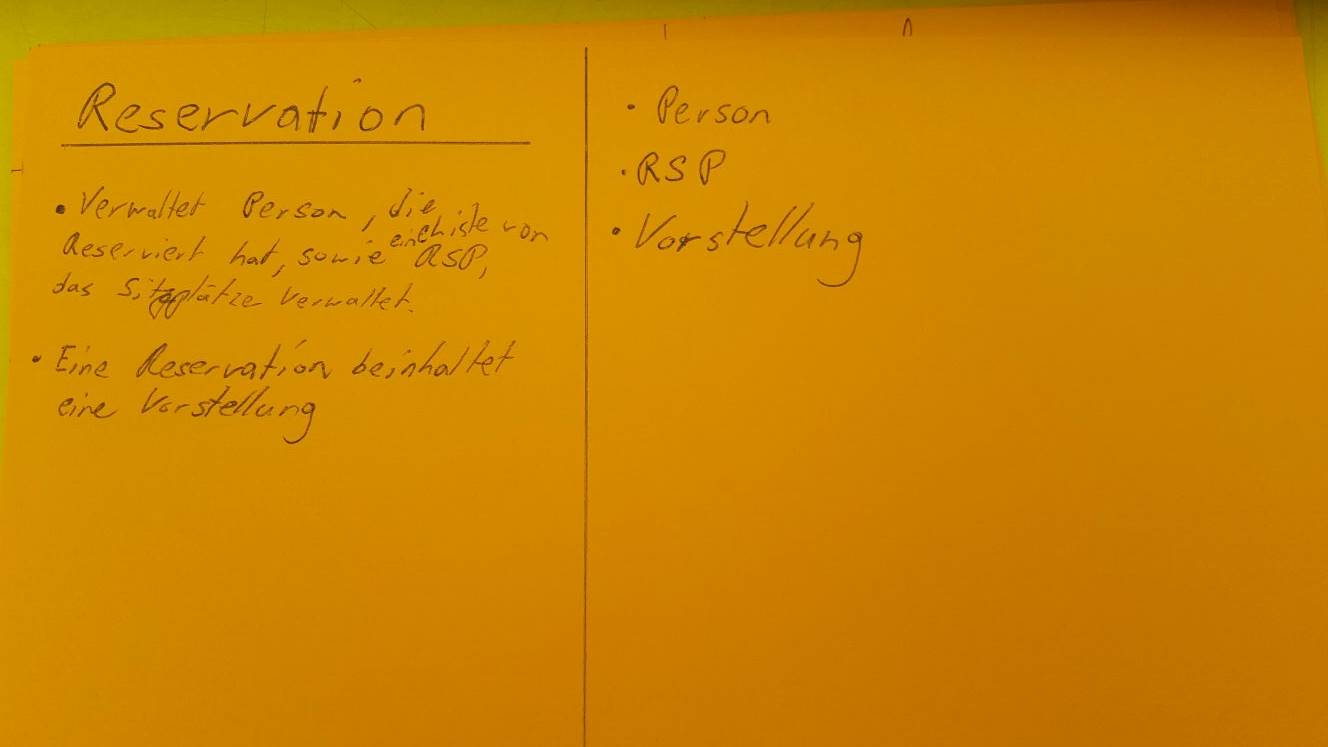 Reservation
• Verwaltet Person, die
Reserviert hat, sowie eine Liste von RSP,
das Sitzplätze verwaltet.
• Eine Reservation beinhaltet
eine Vorstellung
• Person
• RSP
• Vorstellung